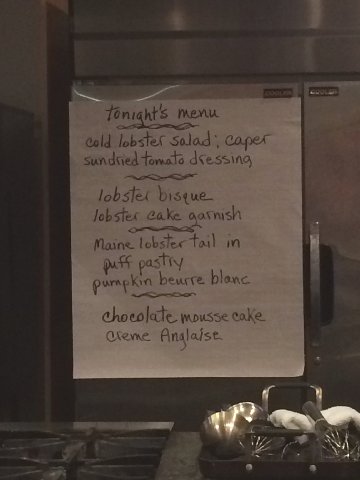 COOLER
COOLER
tonight's menu
cold lobster salad; caper
sundried tomato dressing
lobster bisque
lobster cake garnish
Maine lobster tail in
puff pastry
pumpkin beurre blanc
chocolate mousse cake
creme Anglaise